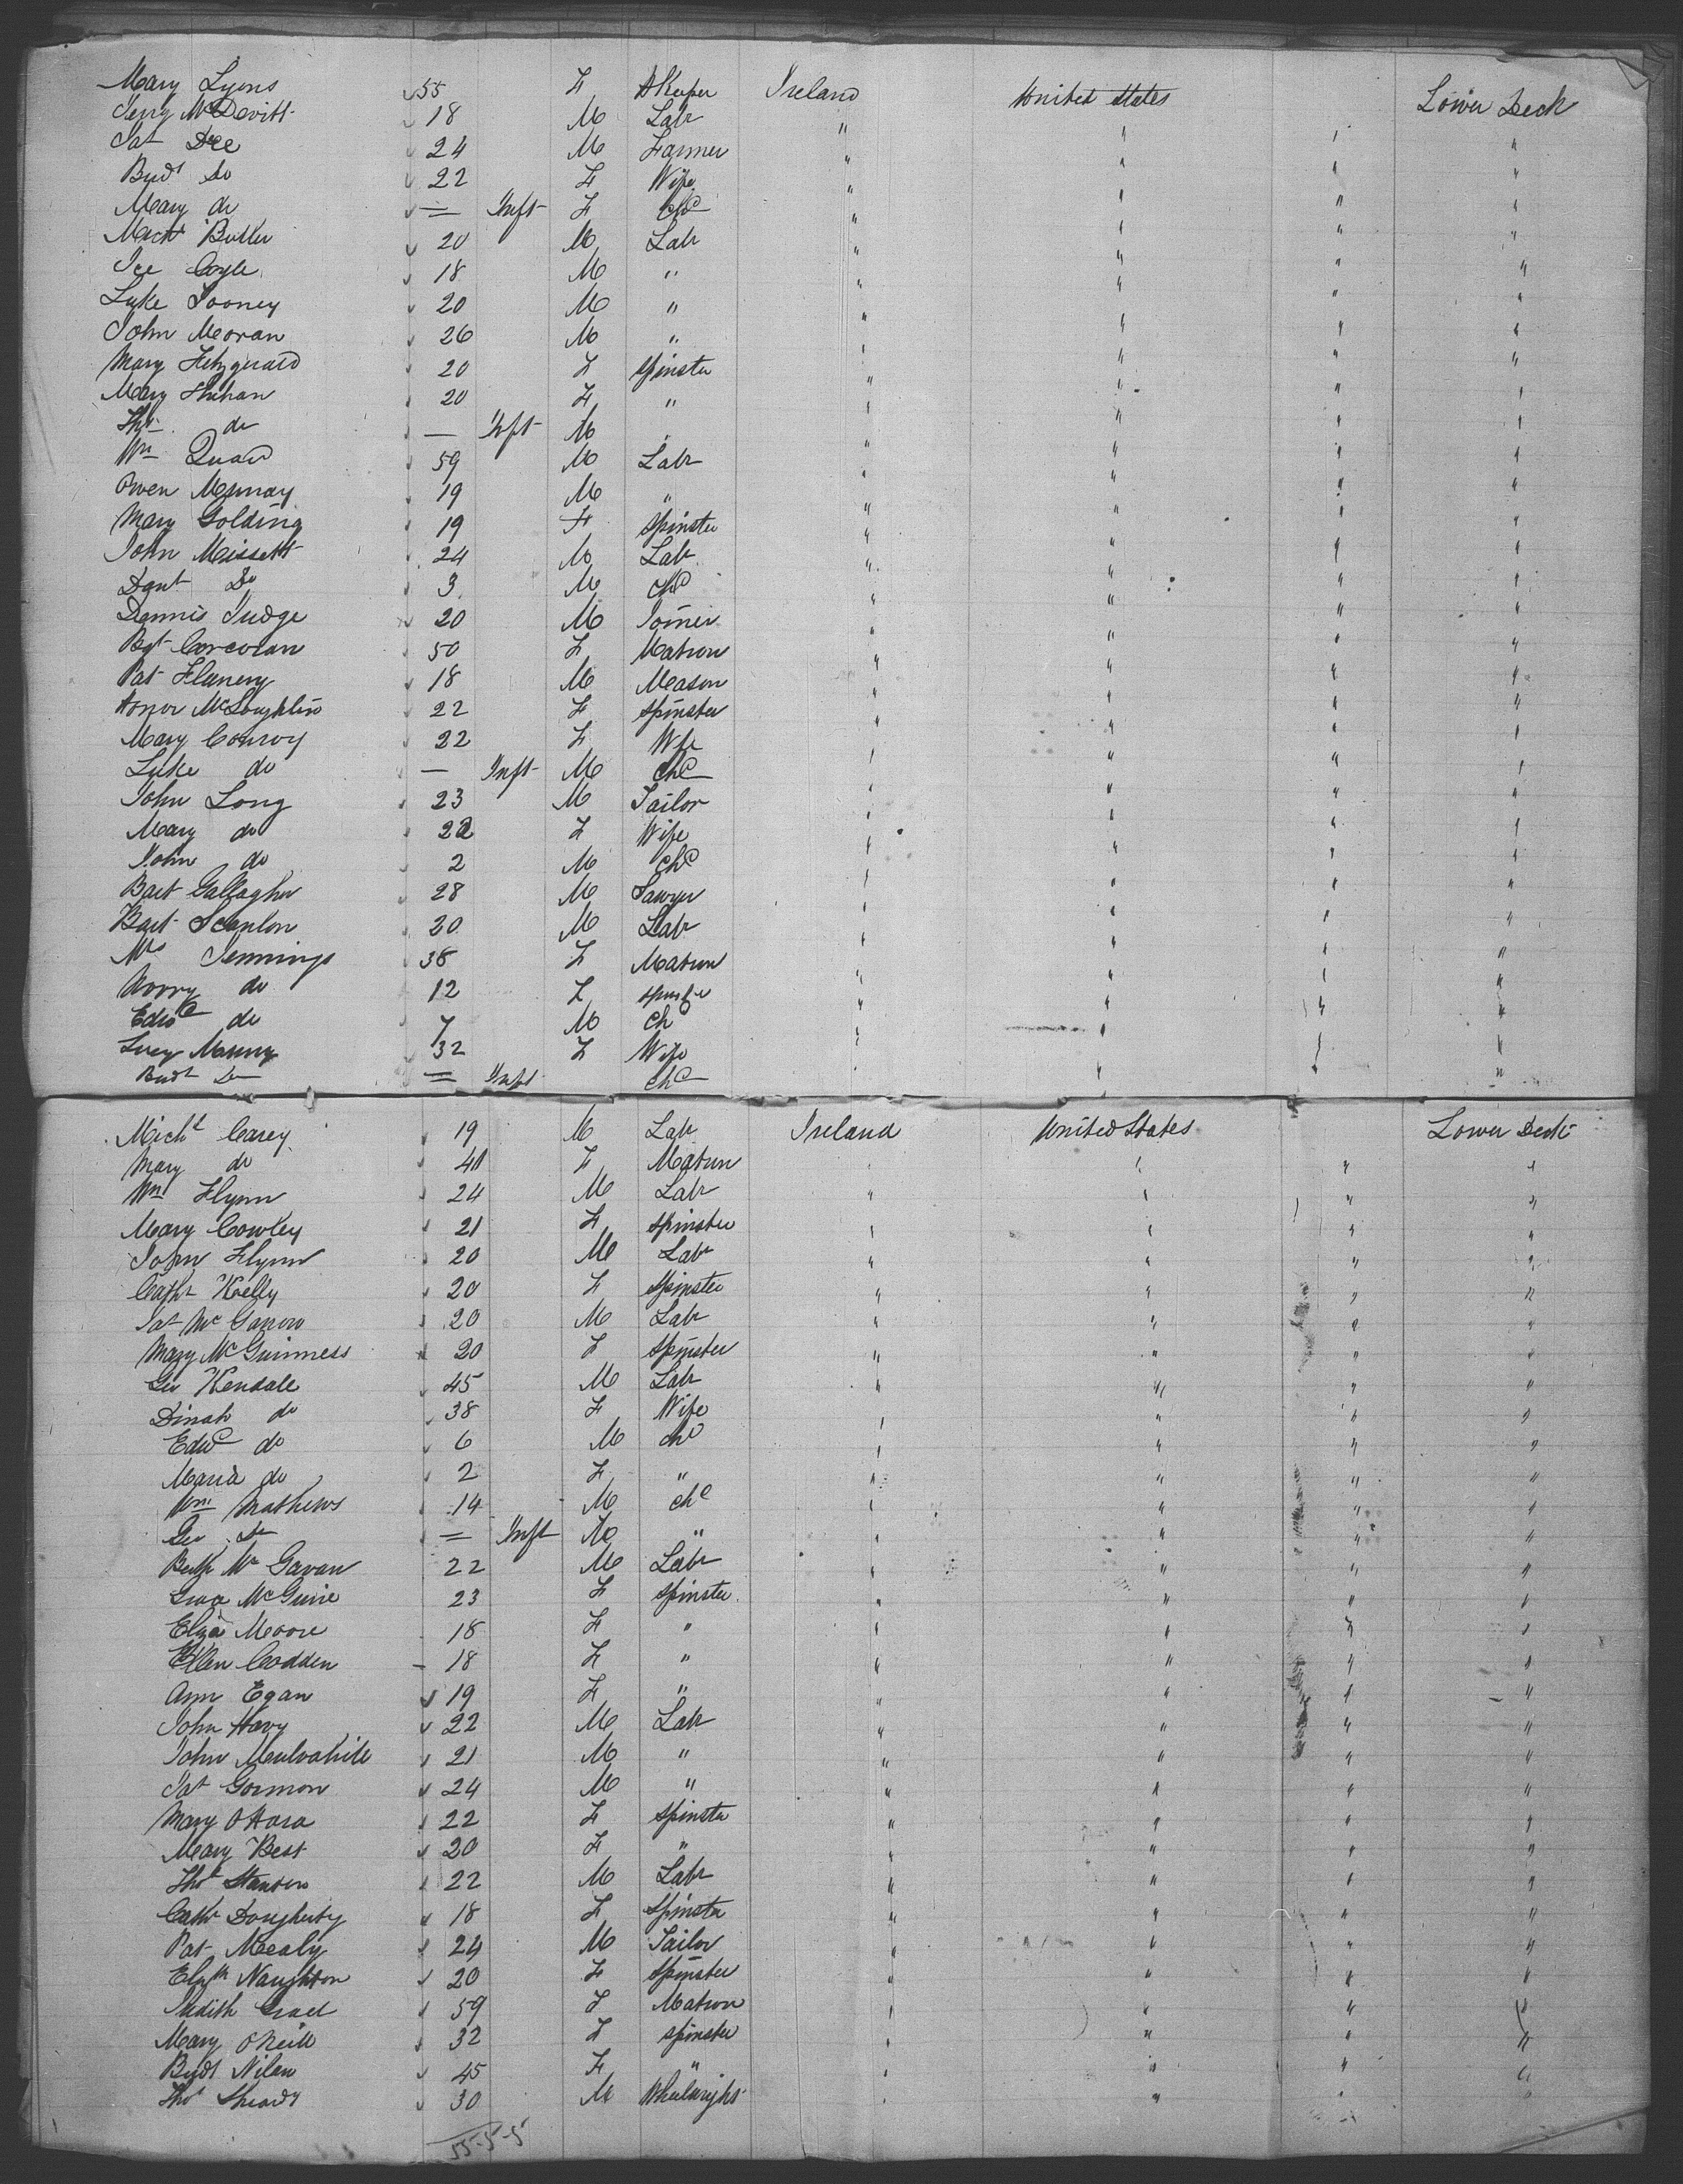 Mary Lyons 55 F HKeeper Ireland United States Lower Deck
McDevitt 18 M Labr " " " "
Pat Dee 24 M Farmer " " " "
Bridt Do 22 F Wife " " " "
Mary do = Inft F Chd " " " "
Michl Butler 20 M Labr " " " "
Coyle 18 M " " " " "
Luke Tooney 20 M " " " " "
John Moran 26 M " " " " "
Mary Fitzgerald 20 F Spinster " " " "
Mary Shehan 20 F " " " " "
Ths do — Inft M " " " "
Wm Quad 59 M Labr " " " "
Owen Murray 19 M " " " " "
Mary Golding 19 F Spinster " " " "
John Missett 24 M Labr " " " "
Danl Do 3 M Chd " " " "
Dennis Judge 20 M Joiner " " " "
Bgt Corcoran 50 F Matron " " " "
Pat Flanery 18 M Mason " " " "
Honor McLoughlin 22 F Spinster " " " "
Mary Conroy 22 F Wfe " " " "
Luke do — Inft M Chd " " " "
John Long 23 M Tailor " " " "
Mary do 22 F Wife " " " "
John do 2 M Chd " " " "
Bart Gallagher 28 M Sawyer " " " "
Bart Scanlon 20 M Labr " " " "
Mrs Jennings 38 F Matron " " " "
Norry do 12 F Spinster " " " "
Edwd do 7 M Ch " " " "
Lucy Manny 32 F Wife " " " "
Bridt Do = Inft Chd " " " "
Michl Carey 19 M Labr Ireland United States Lower Deck
Mary do 41 F Matron " " " "
Wm Flynn 24 M Labr " " " "
Mary Cowley 21 F Spinster " " " "
John Flynn 20 M Labr " " " "
Cath Kelly 20 F Spinster " " " "
Pat Mc Garrow 20 M Labr " " " "
Mary McGuinness 20 F Spinster " " " "
Geo Kendale 45 M Labr " " " "
Dinah do 38 F Wife " " " "
Edwd do 6 M Chd " " " "
Maria do 2 F " " " " "
Wm Mathews 14 M Chd " " " "
Geo Do = Inft M " " " " "
Mc Gavan 22 M Labr " " " "
McGuire 23 F Spinster " " " "
Eliza Moore 18 F " " " " "
Ellen Codden 18 F " " " " "
Ann Egan 19 F " " " " "
John Havy 22 M Labr " " " "
John Mulvahile 21 M " " " " "
Pat Gormon 24 M " " " " "
Mary O Hara 22 F Spinster " " " "
Mary Best 20 F " " " " "
Thos Staunton 22 M Labr " " " "
Cath Dougherty 18 F Spinster " " " "
Pat Mealy 24 M Tailor " " " "
Elizth Naughton 20 F Spinster " " " "
Judith Grael 59 F Matron " " " "
Mary O Neill 32 F Spinster " " " "
Bridt Nilan 45 F " " " " "
Thos Sheady 30 M Wheelwright " " " "
55-5-5